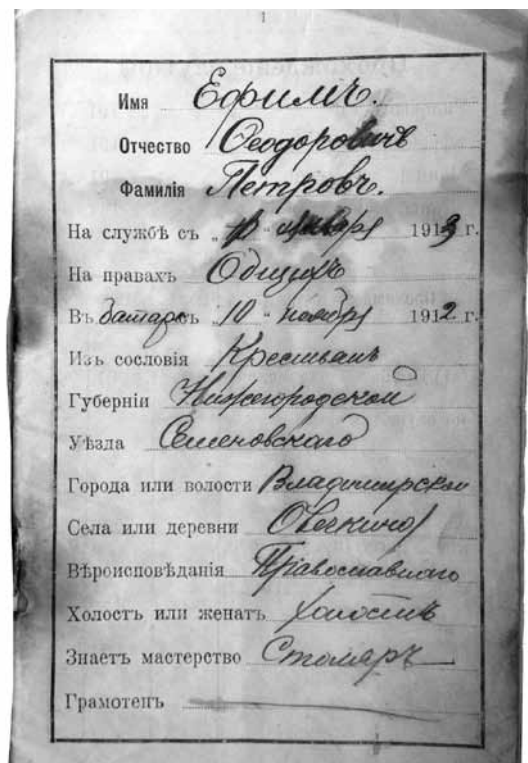 1
Имя Ефимъ.
Отчество Ѳеодоровичъ
Фамилія Петровъ.
На службѣ съ „ “ января 1913 г.
На правахъ Общихъ
Въ батарею „10 “ ноября 1912 г.
Изъ сословія Крестьянъ
Губерніи Нижегородской
Уѣзда Семеновскаго
Города или волости Владимирской
Села или деревни Овечкино
Вѣроисповѣданія Православнаго
Холостъ или женатъ холостъ
Знаетъ мастерство Столяръ
Грамотенъ